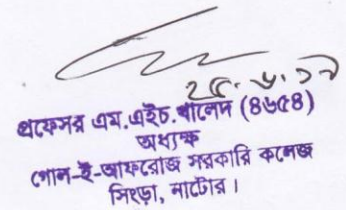 ২৫.৬.১৭
প্রফেসর এম.এইচ.খালেদ (৪৬৫৪)
অধ্যক্ষ
গোল-ই-আফরোজ সরকারি কলেজ
সিংড়া, নাটোর।